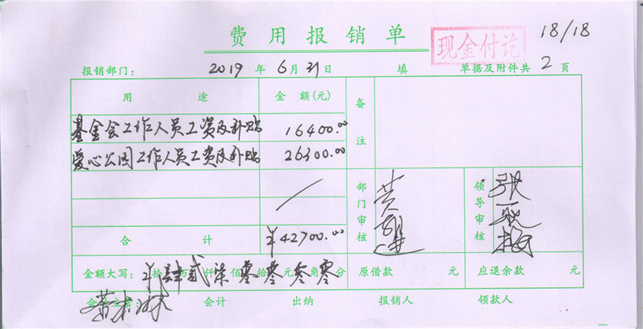 费用报销单
现金付讫
18/18
报销部门： 2019 年 6 月 31 日 填 单据及附件共 2 页
用途 金额(元) 备注
基金会工作人员工资及补贴 16400.00
爱心公园工作人员工资及补贴 26300.00
部门审核 领导审核
合计 ¥42700.00
金额大写： 拾 万 仟 佰 拾 元 角 分 肆 贰 柒 零 零 零 零 原借款 元 应退余款 元
会计 出纳 报销人 领款人